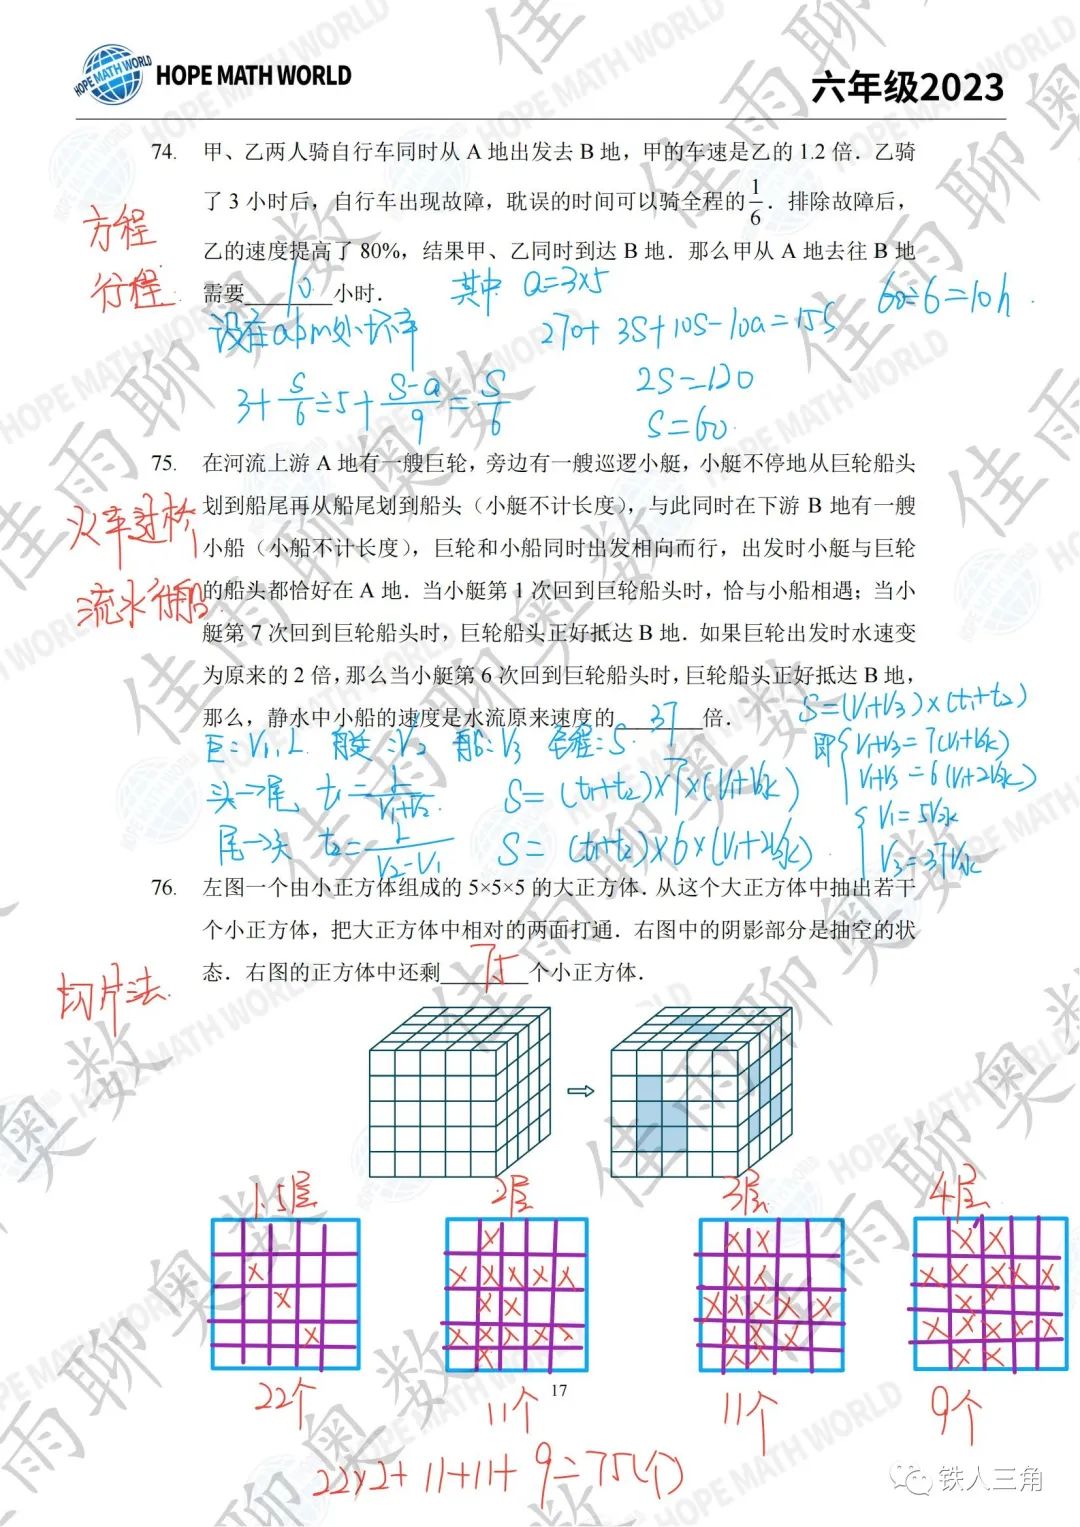 HOPE MATH WORLD
六年级2023
74. 甲、乙两人骑自行车同时从 A 地出发去 B 地，甲的车速是乙的 1.2 倍．乙骑
了 3 小时后，自行车出现故障，耽误的时间可以骑全程的 1/6 ．排除故障后，
乙的速度提高了 80%，结果甲、乙同时到达 B 地．那么甲从 A 地去往 B 地
需要 10 小时．
方程
行程
其中 a=3×5
60÷6=10h
270+3S+10S-10a=15S
3+S/6÷5+(S-a)/9=S/6
2S=120
S=60
75. 在河流上游 A 地有一艘巨轮，旁边有一艘巡逻小艇，小艇不停地从巨轮船头
划到船尾再从船尾划到船头（小艇不计长度），与此同时在下游 B 地有一艘
小船（小船不计长度），巨轮和小船同时出发相向而行，出发时小艇与巨轮
的船头都恰好在 A 地．当小艇第 1 次回到巨轮船头时，恰与小船相遇；当小
艇第 7 次回到巨轮船头时，巨轮船头正好抵达 B 地．如果巨轮出发时水速变
为原来的 2 倍，那么当小艇第 6 次回到巨轮船头时，巨轮船头正好抵达 B 地，
那么，静水中小船的速度是水流原来速度的 37 倍．
火车过桥
流水行船
S=(V1+V3)×(t1+t2)
巨：V1，L 艇：V2 船：V3 全程：S
即 V1+V3=7(V1+V水)
V1+V3=6(V1+2V水)
头→尾 t1=L/(V1+V2) S=(t1+t2)×7×(V1+V水)
V1=5V水
尾→头 t2=L/(V2-V1) S=(t1+t2)×6×(V1+2V水)
V3=37V水
76. 左图一个由小正方体组成的 5×5×5 的大正方体．从这个大正方体中抽出若干
个小正方体，把大正方体中相对的两面打通．右图中的阴影部分是抽空的状
态．右图的正方体中还剩 75 个小正方体．
切片法
1.5层 2层 3层 4层
22个 11个 11个 9个
17
22×2+11+11+9=75(个)
铁人三角
佳雨聊奥数